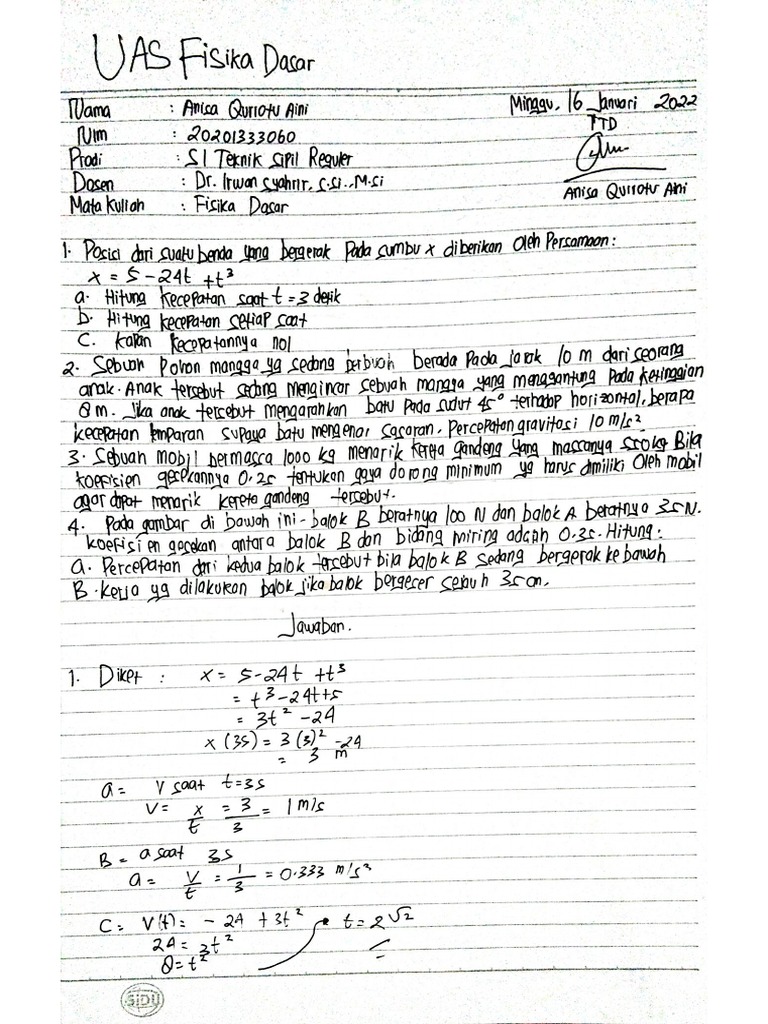 UAS Fisika Dasar
Nama : Anisa Qurrotu Aini
Minggu, 16 Januari 2022
TTD
NIm : 20201333060
Prodi : S1 Teknik Sipil Reguler
Dosen : Dr. Irwan Syahrir, S.Si., M.Si
Anisa Qurrotu Aini
Mata Kuliah : Fisika Dasar
1. Posisi dari suatu benda yang bergerak Pada sumbu x diberikan Oleh Persamaan:
x = 5 - 24t + t³
a. Hitung Kecepatan saat t = 3 detik
b. Hitung kecepatan setiap saat
C. Kapan Kecepatannya nol
2. Sebuah Pohon mangga yg sedang berbuah berada Pada jarak 10 m dari seorang
anak. Anak tersebut sedang mengincar sebuah mangga yang menggantung Pada Ketinggian
8 m. Jika anak tersebut mengarahkan batu Pada sudut 45° terhadap horizontal, berapa
kecepatan lemparan supaya batu mengenai sasaran, Percepatan gravitasi 10 m/s²
3. Sebuah mobil bermassa 1000 kg menarik kereta gandeng yang massanya 550 kg Bila
koefisien gesekannya 0.25 tentukan gaya dorong minimum yg harus dimiliki Oleh mobil
agar dapat menarik kereta gandeng tersebut.
4. Pada gambar di bawah ini - balok B beratnya 100 N dan balok A beratnya 35 N.
koefisien gesekan antara balok B dan bidang miring adalah 0.35. Hitung:
a. Percepatan dari kedua balok tersebut bila balok B sedang bergerak ke bawah
B. Kerja yg dilakukan balok jika balok bergeser sejauh 35 cm.
Jawaban.
1. Diket : x = 5 - 24t + t³
= t³ - 24t + 5
= 3t² - 24
x (3s) = 3 (3)² - 24
= 3 m
a = V saat t = 3s
V = x/t = 3/3 = 1 m/s
B = a saat 3s
a = V/t = 1/3 = 0.333 m/s²
C = V(t) = - 24 + 3t² t = 2√2
24 = 3t²
8 = t²
SiDU